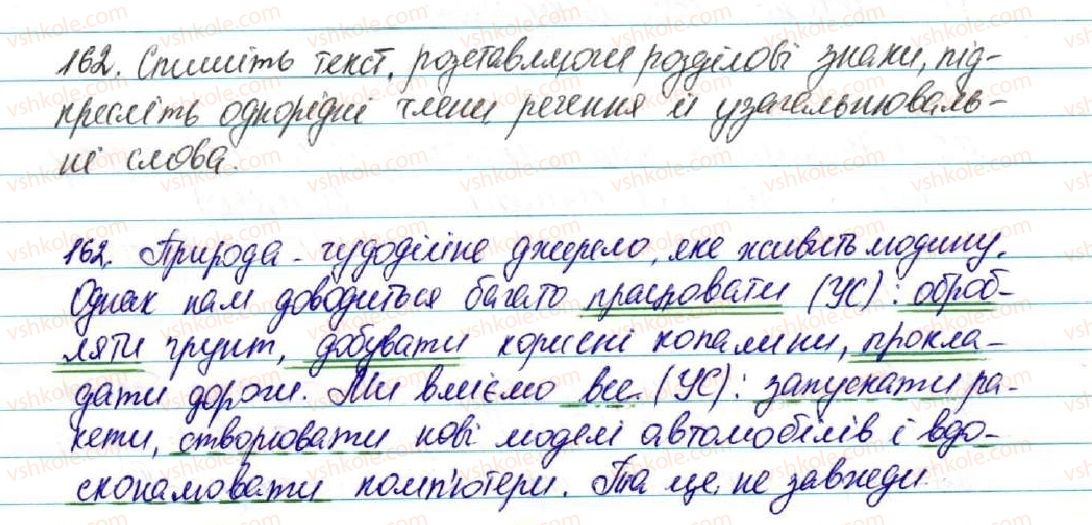 162. Спишіть текст, розставляючи розділові знаки, під-
кресліть однорідні члени речення й узагальнюваль-
ні слова.
162. Природа - чудодійне джерело, яке живить людину.
Однак нам доводиться багато працювати (УС): оброб-
ляти ґрунт, добувати корисні копалини, прокла-
дати дороги. Ми вміємо все (УС): запускати ра-
кети, створювати нові моделі автомобілів і вдо-
сконалювати комп'ютери. Та це не завжди